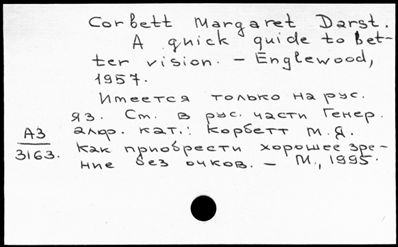 Corbett Margaret Darst.
A quick guide to bet-
ter vision. – Englewood,
1957.
Имеется только на рус.
яз. См. в рус. части Генер.
алф. кат.: Корбетт М.Д.
Как приобрести хорошее зре-
ние без очков. – М., 1995.
А3
3163.